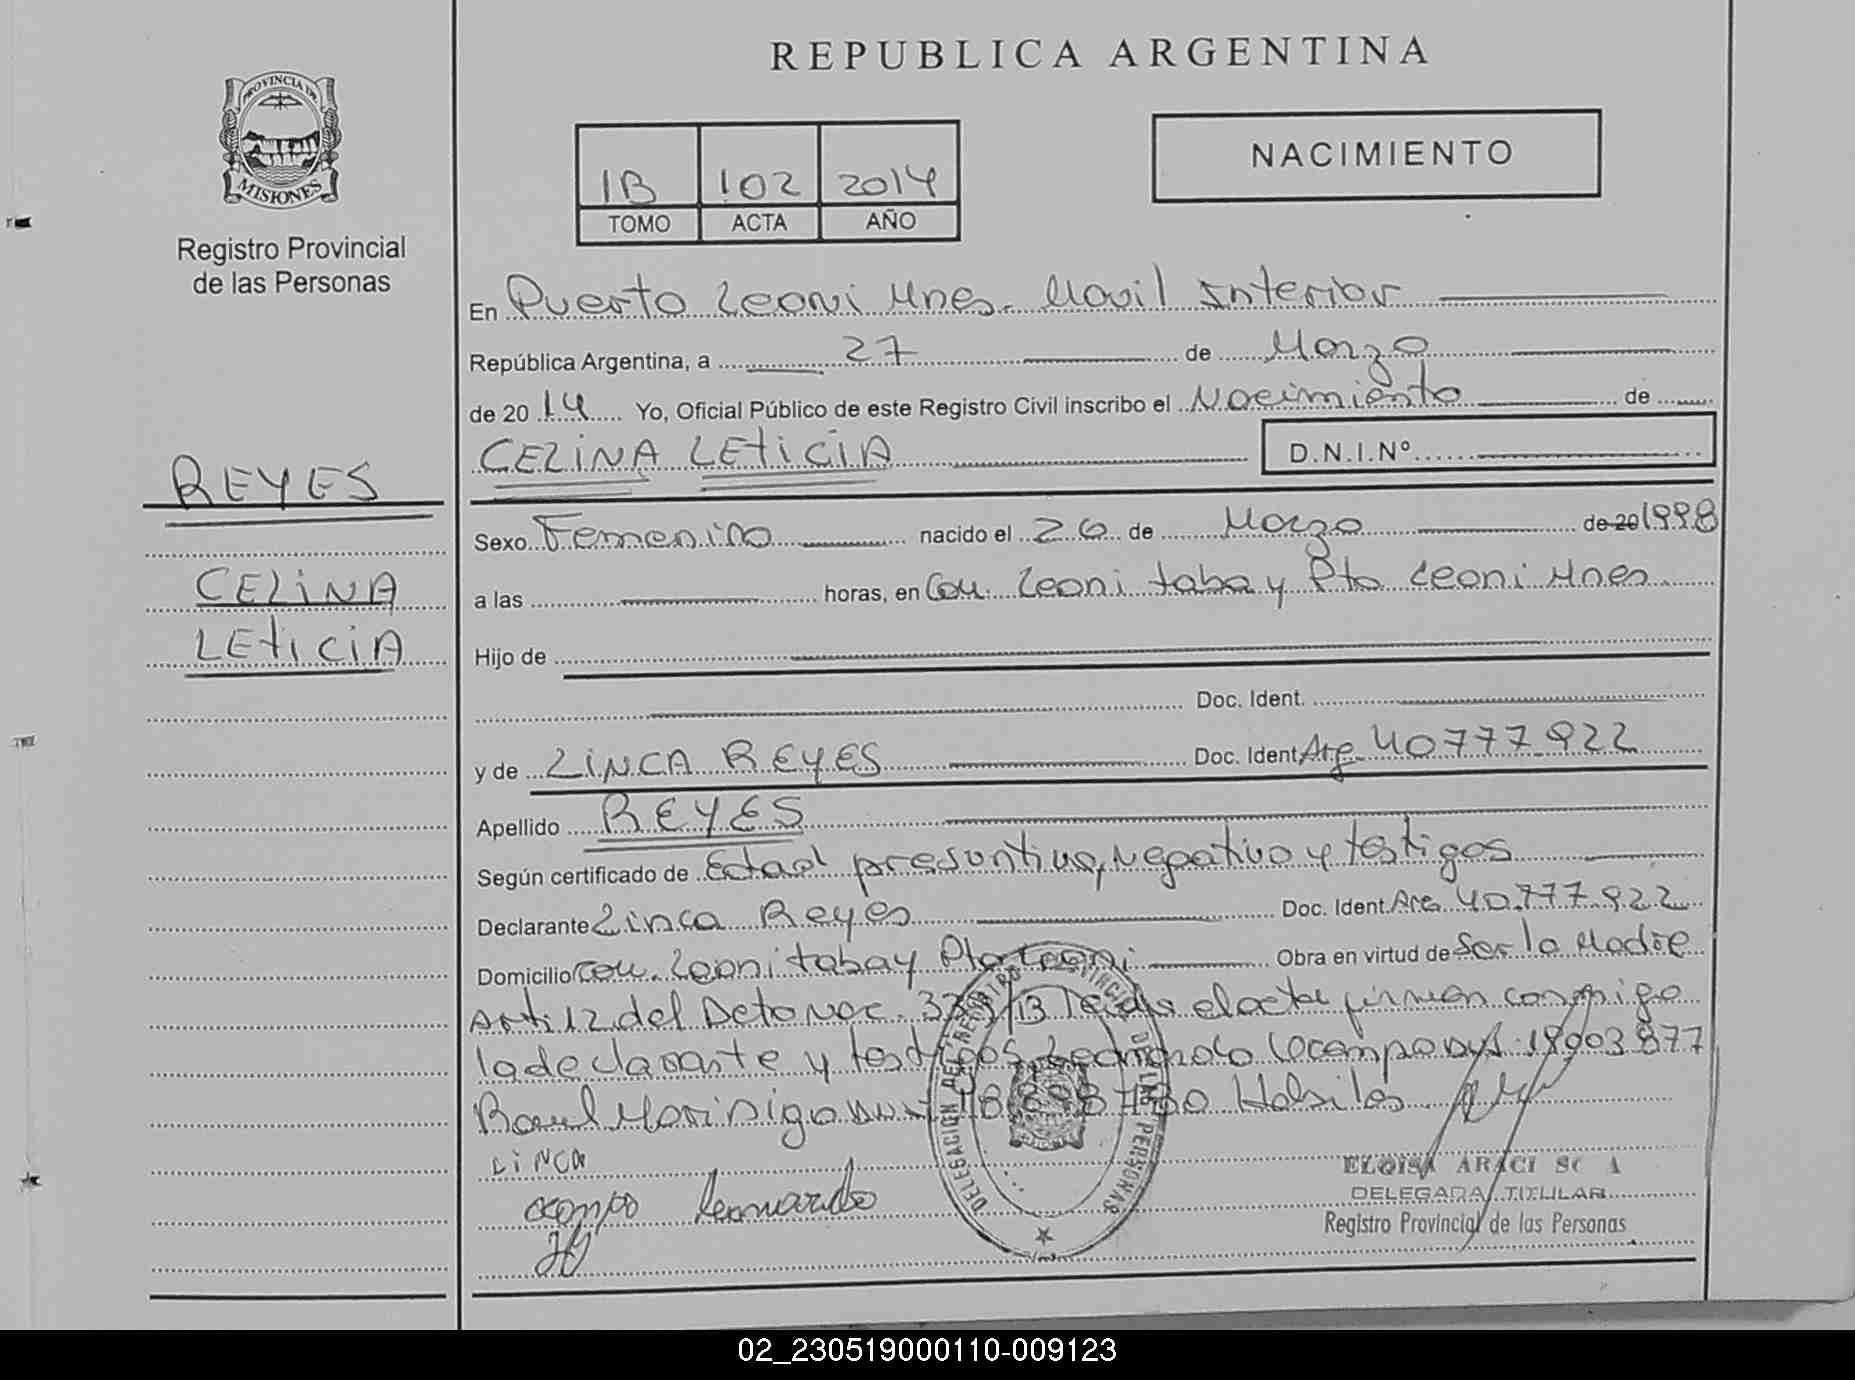 REPUBLICA ARGENTINA
PROVINCIA DE
MISIONES
Registro Provincial
de las Personas
1B 102 2014
TOMO ACTA AÑO
NACIMIENTO
En Puerto Leoni Mnes. Movil Interior
República Argentina, a 27 de Marzo
de 2014 Yo, Oficial Público de este Registro Civil inscribo el Nacimiento de
CELINA LETICIA D.N.I.Nº
REYES
CELINA
LETICIA
Sexo Femenino nacido el 26 de Marzo de 20 1998
a las horas, en Com. Leoni tabay Pto Leoni Mnes
Hijo de
Doc. Ident.
y de LINCA REYES Doc. Ident. Arg. 40777922
Apellido REYES
Según certificado de Edad presuntiva, Negativo y testigos
Declarante Linca Reyes Doc. Ident. Arg. 40.777.922
Domicilio Com. Leoni tabay Pto Leoni Obra en virtud de Ser la Madre
Art:12 del Deto Nac. 339/13 Leida el acta firman conmigo
la declarante y testigos Leonardo Ocampo 18003877
Raul Morinigo 18898780 Habiles
LINCA
ocampo Leonardo
DELEGACION DEL REGISTRO PROVINCIAL DE LAS PERSONAS
ELOISA ARACI
DELEGADA TITULAR
Registro Provincial de las Personas
02_230519000110-009123